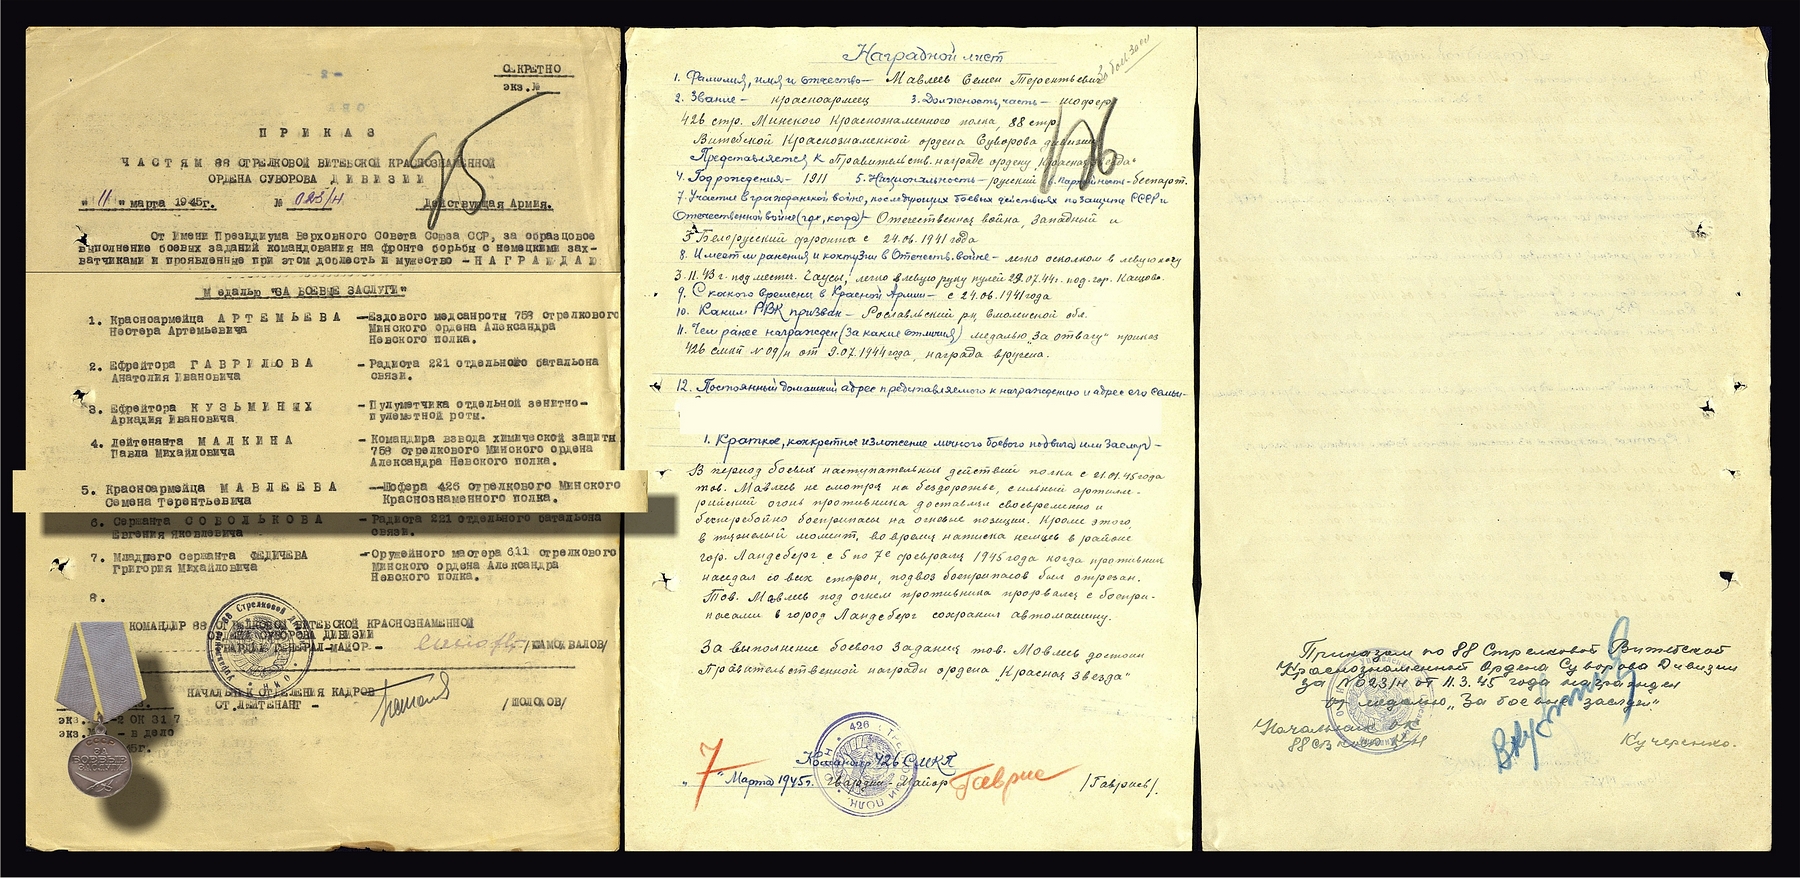 СЕКРЕТНО
экз.№
ПРИКАЗ
ЧАСТЯМ 88 СТРЕЛКОВОЙ ВИТЕБСКОЙ КРАСНОЗНАМЕННОЙ
ОРДЕНА СУВОРОВА ДИВИЗИИ
95
"11" марта 1945г. № 025/н Действующая Армия.
От Имени Президиума Верховного Совета Союза ССР, за образцовое
выполнение боевых заданий командования на фронте борьбы с немецкими зах-
ватчиками и проявленные при этом доблесть и мужество - НАГРАЖДАЮ
Медалью "ЗА БОЕВЫЕ ЗАСЛУГИ"
1. Красноармейца АРТЕМЬЕВА Нестера Артемьевича
-Ездового медсанроти 758 стрелкового
Минского ордена Александра
Невского полка.
2. Ефрейтора ГАВРИЛОВА
Анатолия Ивановича
-Радиста 221 отдельного батальона
связи.
3. Ефрейтора КУЗЬМИНЫХ
Аркадия Ивановича
-Пулуметчика отдельной зенитно-
пулеметной роты.
4. Лейтенанта МАЛКИНА
Павла Михайловича
-Командира взвода химической защиты
758 стрелкового Минского ордена
Александра Невского полка.
5. Красноармейца МАВЛЕЕВА
Семена Терентьевича
-Шофера 426 стрелкового Минского
Краснознаменного полка.
6. Сержанта СОБОЛЬКОВА
Евгения Яковлевича
-Радиста 221 отдельного батальона
связи.
7. Младшего сержанта ФЕДИЧЕВА
Григория Михайловича
-Оружейного мастера 611 стрелкового
Минского ордена Александра
Невского полка.
8.
КОМАНДИР 88 СТРЕЛКОВОЙ ВИТЕБСКОЙ КРАСНОЗНАМЕННОЙ
ОРДЕНА СУВОРОВА ДИВИЗИИ
ГВАРДИИ ГЕНЕРАЛ-МАЙОР - /САМОЙВАЛОВ/
НАЧАЛЬНИК ОТДЕЛЕНИЯ КАДРОВ
СТ.ЛЕЙТЕНАНТ -
экз. -2 ОК 317
экз. - в дело
СССР
ЗА
БОЕВЫЕ
ЗАСЛУГИ
Наградной лист
1. Фамилия, имя и отчество - Мавлеев Семен Терентьевич
2. Звание - красноармеец 3. Должность, часть - шофер
426 стр. Минского Краснознаменного полка, 88 стр.
Витебской Краснознаменной ордена Суворова дивизии
Представляется к Правительств. награде ордену „Красная Звезда"
4. Год рождения - 1911 5. Национальность - русский 6. Партийность - беспарт.
7. Участие в гражданской войне, последующих боевых действиях по защите СССР и
Отечественной войне (где, когда) - Отечественная война, Западный и
3 Белорусский фронта с 24.06.1941 года
8. Имеет ли ранения и контузии в Отечеств. войне - легко осколком в левую ногу
3.11.43 г. под местеч. Чаусы, легко в левую руку пулей 29.07.44 г. под. гор. Кащово.
9. С какого времени в Красной Армии - с 24.06.1941 года
10. Каким РВК призван - Рославльский рц Смоленской обл.
11. Чем ранее награжден (за какие отличия) медалью „За отвагу" приказ
426 смкп № 09/н от 9.07.1944 года, награда вручена.
12. Постоянный домашний адрес представляемого к награждению и адрес его семьи -
1. Краткое, конкретное изложение личного боевого подвига или заслуг -
В период боевых наступательных действий полка с 21.01.45 года
тов. Мавлеев не смотря на бездорожье, сильный артилле-
рийский огонь противника доставлял своевременно и
бесперебойно боеприпасы на огневые позиции. Кроме этого,
в тяжелый момент, во время натиска немцев в районе
гор. Ландсберг с 5 по 7е февраля 1945 года когда противник
наседал со всех сторон, подвоз боеприпасов был отрезан.
Тов. Мавлеев под огнем противника прорвался с боепри-
пасами в город Ландсберг сохранил автомашину.
За выполнение боевого задания тов. Мавлеев достоин
Правительственной награды ордена Красная Звезда"
Командир 426 СМКП
„7" Марта 1945 г. Гвардии-Майор Гаврис /Гаврись/.
Приказом по 88 Стрелковой Витебской
Краснознаменной Ордена Суворова Дивизии
за № 025/н от 11.3.45 года награжден
медалью „За боевые заслуги"
Начальник ОК
88 СВ Кучеренко.